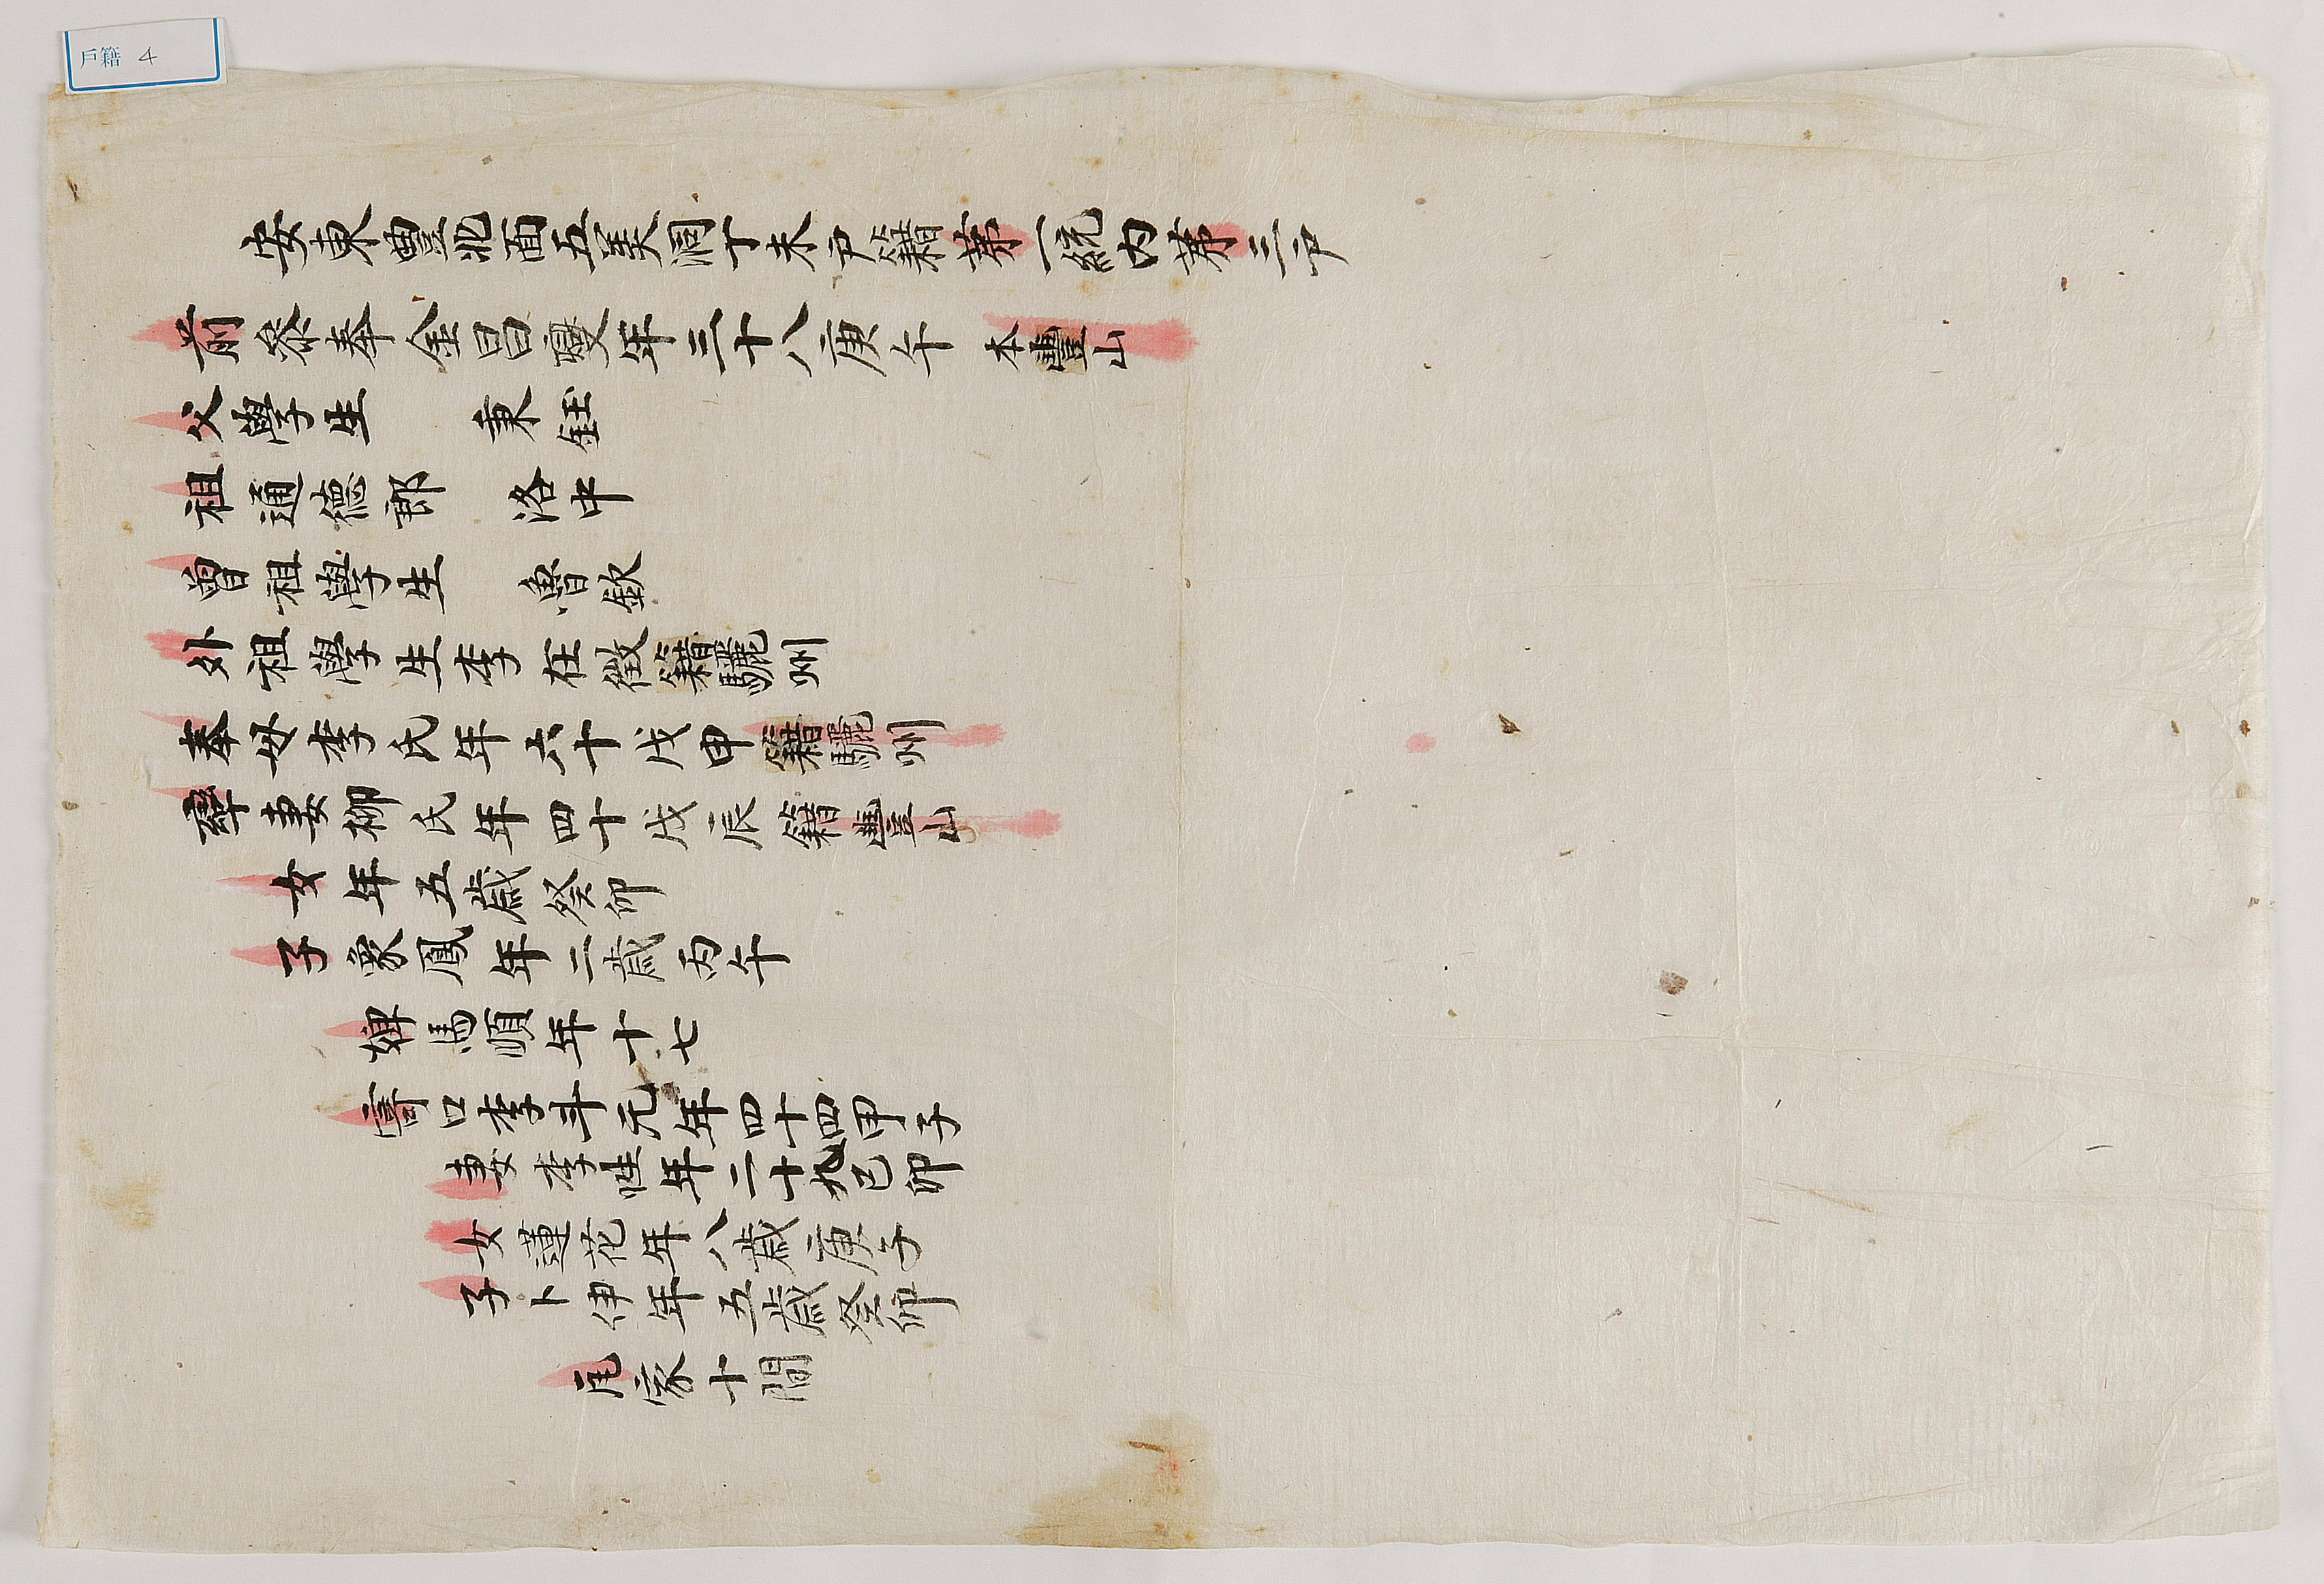 戶籍 4
安東豊北面五美洞丁未戶籍第一統内第三戶
前參奉金昌燮年三十八庚午 本豊山
父學生 秉鈺
祖通德郎 洛中
曾祖學生 魯欽
外祖學生李在徵籍驪州
奉母李氏年六十戊申籍驪州
率妻柳氏年四十戊辰籍豊山
女年五歲癸卯
子象鳳年二歲丙午
婢馬順年十七
寄口李斗元年四十四甲子
妻李姓年二十九己卯
女蓮花年八歲庚子
子卜伊年五歲癸卯
瓦家十間